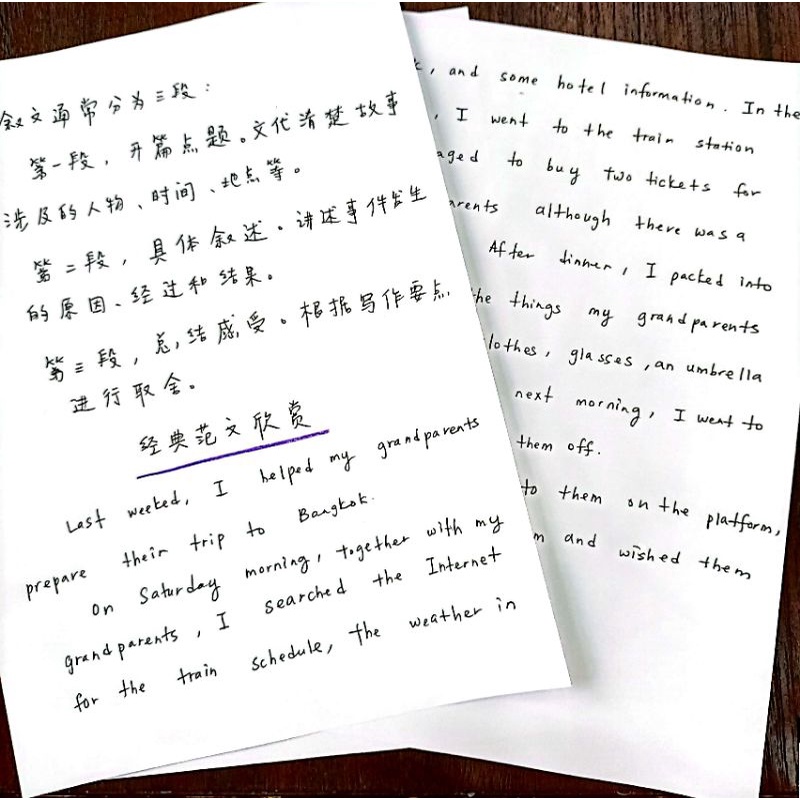 叙文通常分为三段：
第一段，开篇点题。文代清楚故事
涉及的人物、时间、地点等。
第二段，具体叙述。讲述事件发生
的原因、经过和结果。
第三段，总结感受。根据写作要点
进行取舍。
经典范文欣赏
Last weeked, I helped my grandparents
prepare their trip to Bangkok.
On Saturday morning, together with my
grandparents, I searched the Internet
for the train schedule, the weather in
k, and some hotel information. In the
, I went to the train station
aged to buy two tickets for
arents although there was a
After dinner, I packed into
he things my grandparents
lothes, glasses, an umbrella
next morning, I went to
them off.
to them on the platform,
m and wished them